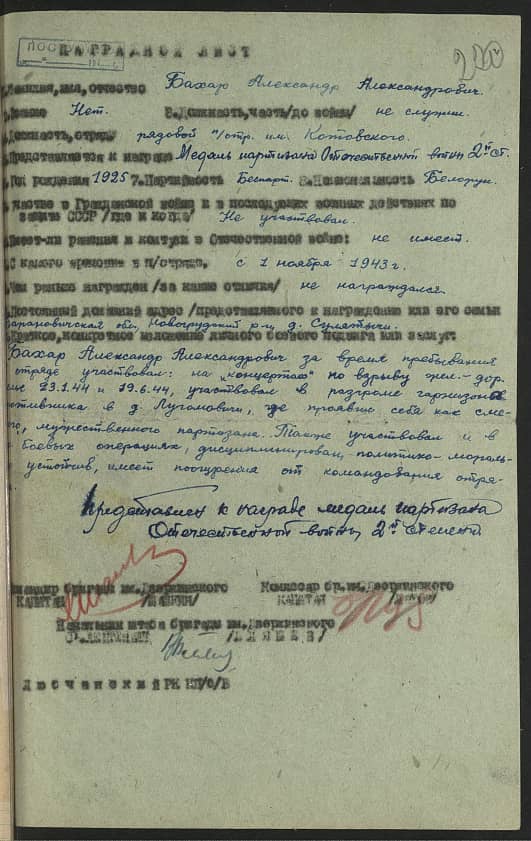 ПОС
НАГРАДНОЙ ЛИСТ
200
Фамилия, имя, отчество Бахар Александр Александрович.
Звание Нет. 3. Должность, часть /до войны/ не служил.
Должность, отряд рядовой п/отр. им. Котовского.
Представляется к награде Медаль партизана Отечественной войны 2й ст.
Год рождения 1925 7. Партийность Беспарт. 8. Национальность Белорус.
участие в Гражданской войне и в последующих военных действиях по
защите СССР /где и когда/ Не участвовал.
Имеет-ли ранения и контузии в Отечественной войне: не имеет.
С какого времени в п/отряде. с 1 ноября 1943 г.
Чем раньше награжден /за какие отличия/ не награждался.
Постоянный домашний адрес /представляемого к награждению или его семьи
Барановичская обл, Новогрудский р-н, д. Сулятычи.
Краткое, конкретное изложение личного боевого подвига или заслуг
Бахар Александр Александрович за время пребывания
отряде участвовал: на "концертах" по взрыву жел.-дор-
23.1.44 и 19.6.44, участвовал в разгроме гарнизона
отивника в д. Лугановичи, где проявил себя как сме-
го, мужественного партизана. Также участвовал и в
боевых операциях, дисциплинирован, политико-мораль-
устойчив, имеет поощрения от командования отря-
Представлен к награде медаль партизана
Отечественной войны 2й степени
мандир бригады им. Дзержинского Комиссар бр. им. Дзержинского
КАПИТАН /ШАШКИН/ КАПИТАН
Начальник штаба бригады им. Дзержинского
ЛЕЙТЕНАНТ
РК КП/б/Б